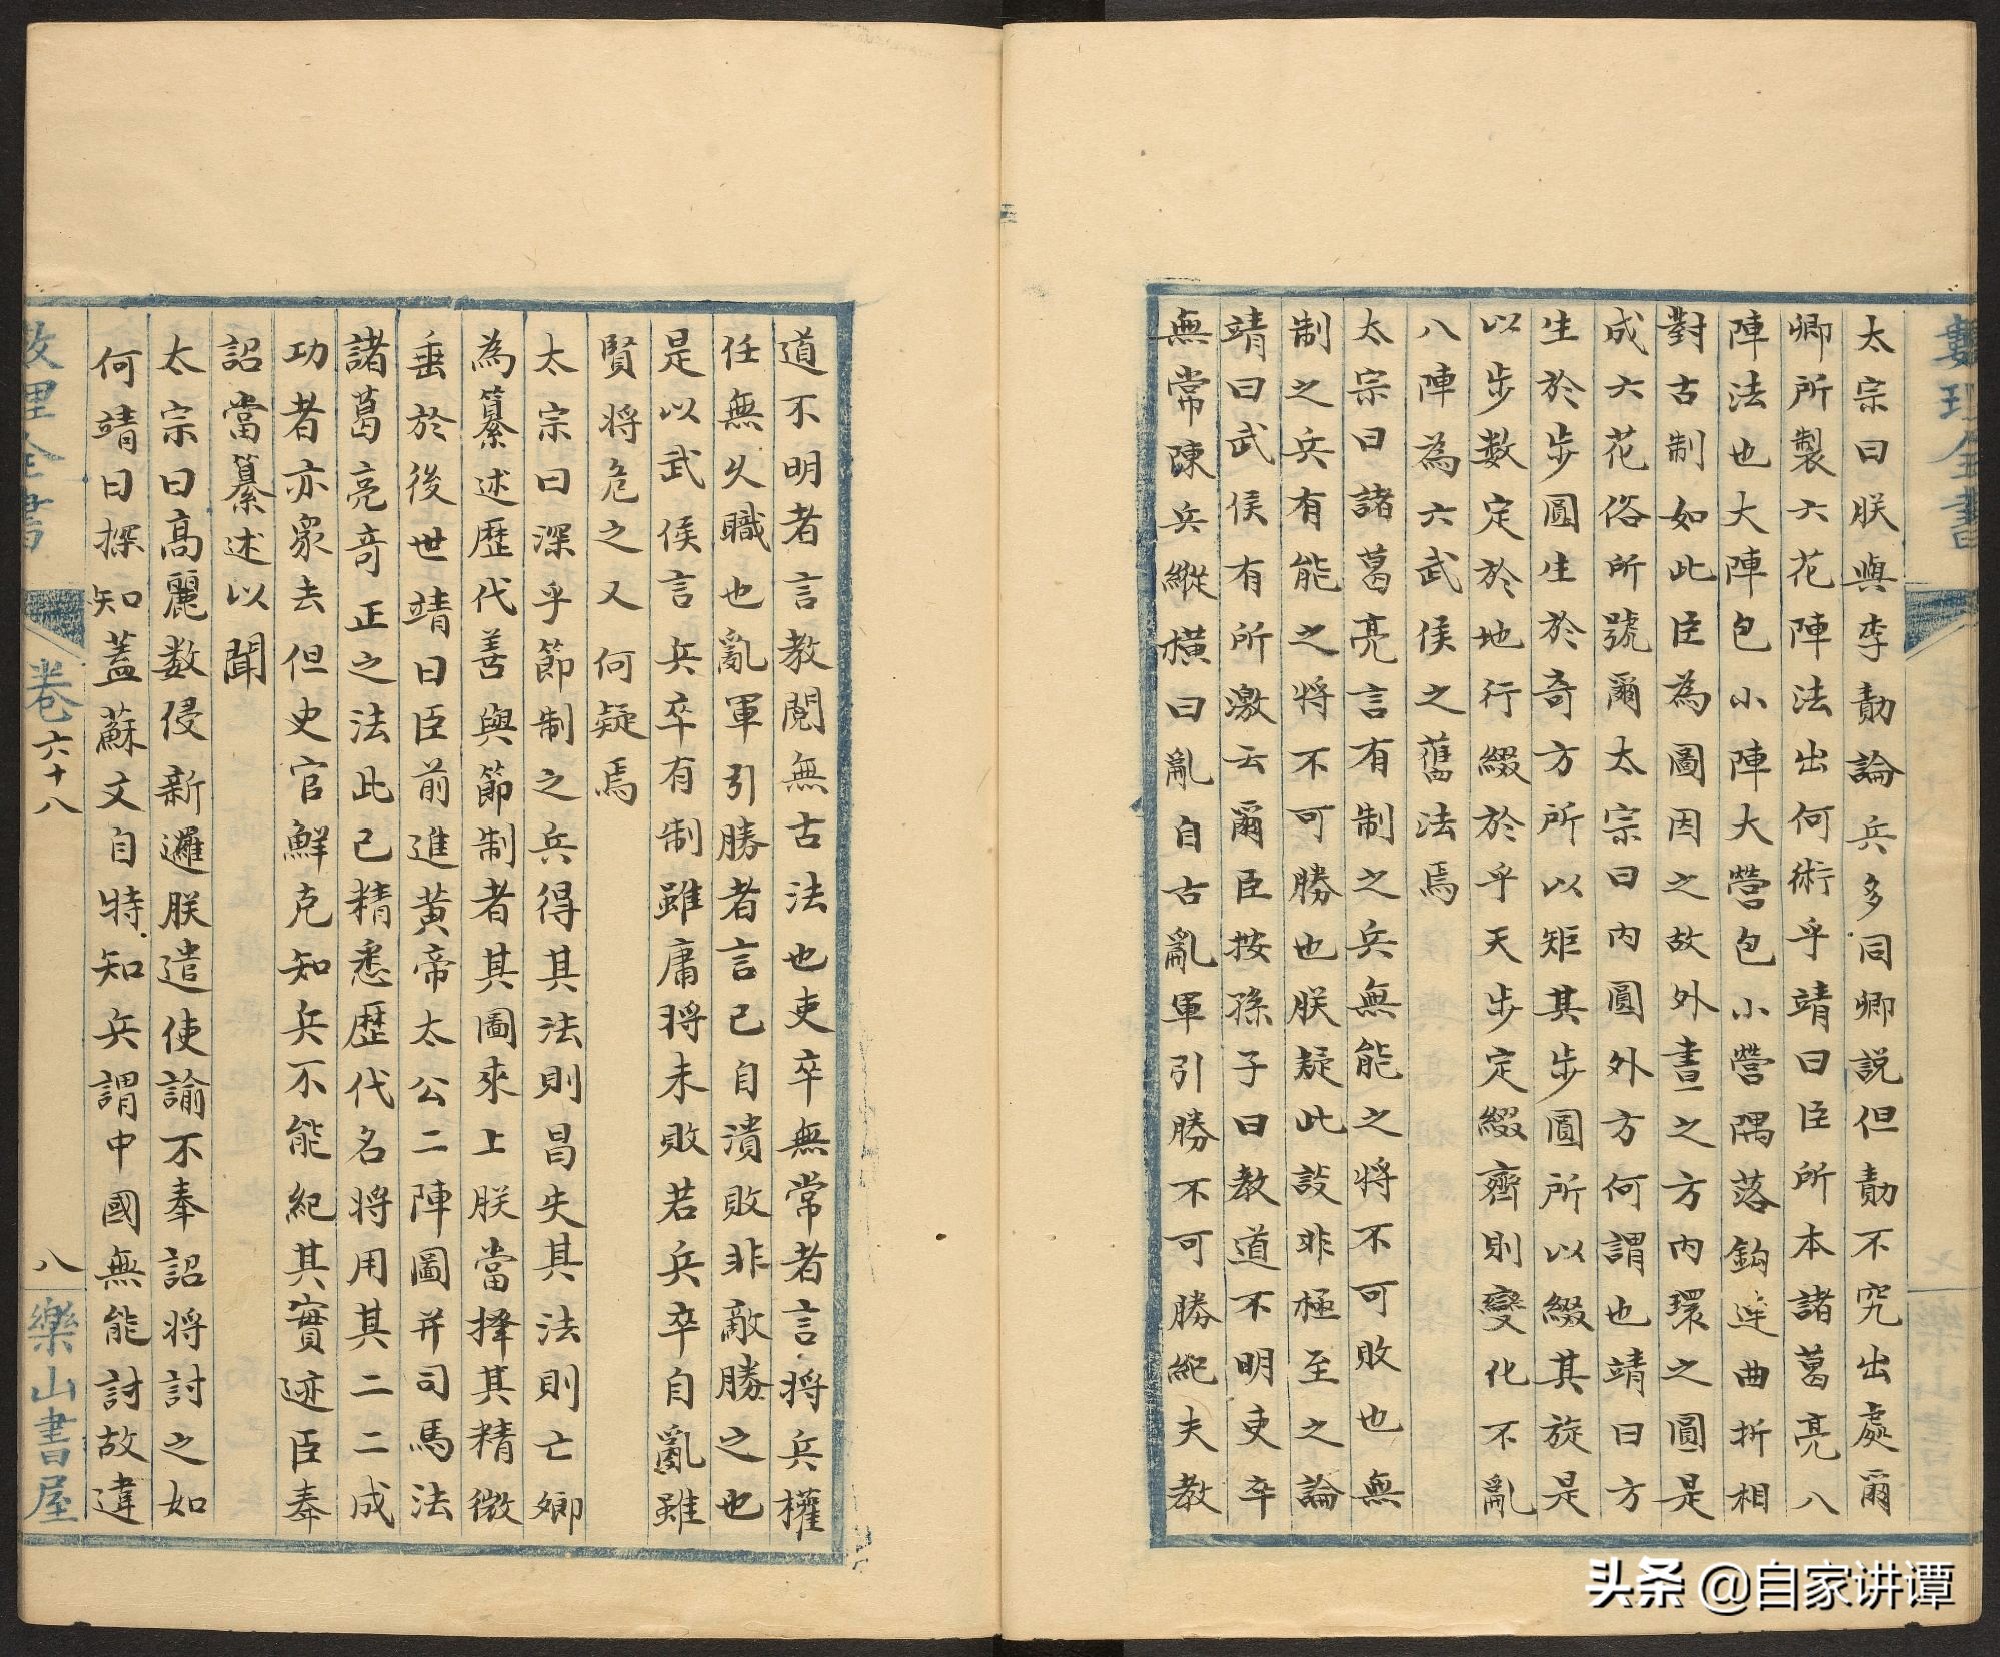 太宗曰朕與李勣論兵多同卿説但勣不究出處爾
卿所製六花陣法出何術乎靖曰臣所本諸葛亮八
陣法也大陣包小陣大營包小營隅落鈎連曲折相
對古制如此臣為圖因之故外畫之方內環之圓是
成六花俗所號爾太宗曰內圓外方何謂也靖曰方
生於步圓生於奇方所以矩其步圓所以綴其旋是
以步数定於地行綴於乎天步定綴齊則變化不亂
八陣為六武侯之舊法焉
太宗曰諸葛亮言有制之兵無能之將不可敗也無
制之兵有能之將不可勝也朕疑此談非極至之論
靖曰武侯有所激云爾臣按孫子曰教道不明吏卒
無常陳兵縱橫曰亂自古亂軍引勝不可勝紀夫教
道不明者言教閱無古法也吏卒無常者言將兵權
任無久職也亂軍引勝者言己自潰敗非敵勝之也
是以武侯言兵卒有制雖庸將未敗若兵卒自亂雖
賢將危之又何疑焉
太宗曰深乎節制之兵得其法則昌失其法則亡卿
為纂述歷代善與節制者其圖來上朕當擇其精微
垂於後世靖曰臣前進黃帝太公二陣圖并司馬法
諸葛亮奇正之法此已精悉歷代名將用其一二成
功者亦衆去但史官鮮克知兵不能紀其實迹臣奉
詔當纂述以聞
太宗曰高麗数侵新邏朕遣使諭不奉詔將討之如
何靖曰探知蓋蘇文自恃知兵謂中國無能討故違
數理全書
卷六十八
八
樂山書屋
头条 @自家讲谭